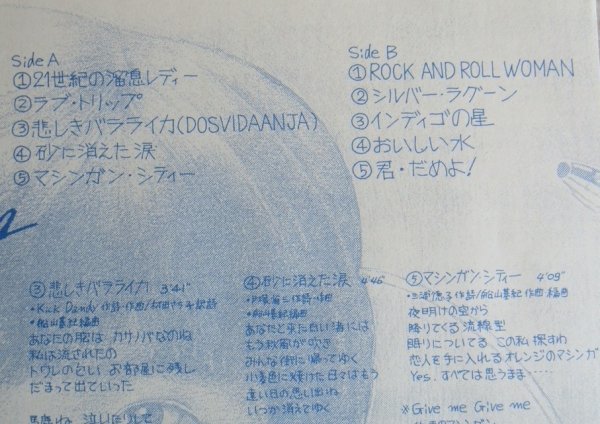 Side A
①21世紀の溜息レディー
②ラブ・トリップ
③悲しきバラライカ(DOSVIDAANJA)
④砂に消えた涙
⑤マシンガン・シティー
Side B
①ROCK AND ROLL WOMAN
②シルバー・ラグーン
③インディゴの星
④おいしい水
⑤君・だめよ!
③悲しきバラライカ 3'41"
・Kick Dandy 作詩・作曲/
・船山基紀編曲
あなたの胸は カサノバなのね
私は流されたの
トワレの匂い お部屋に残し
だまって出ていった
馬鹿ね 泣いたりして
④砂に消えた涙 4'46"
作詩・作曲
・船山基紀編曲
あなたと来た白い海には
もう秋風が吹き
みんな街に帰ってゆく
小麦色に焼けた日々はもう
遠い日の思い出ね
いつか消えてゆく
⑤マシンガン・シティー 4'09"
・三浦徳子作詩/船山基紀 作曲 編曲
夜明けの空から
降りてくる流線型
眠りについてる この私 探すわ
恋人を手に入れる オレンジのマシンガ
Yes, すべては思うまま……
※Give me Give me